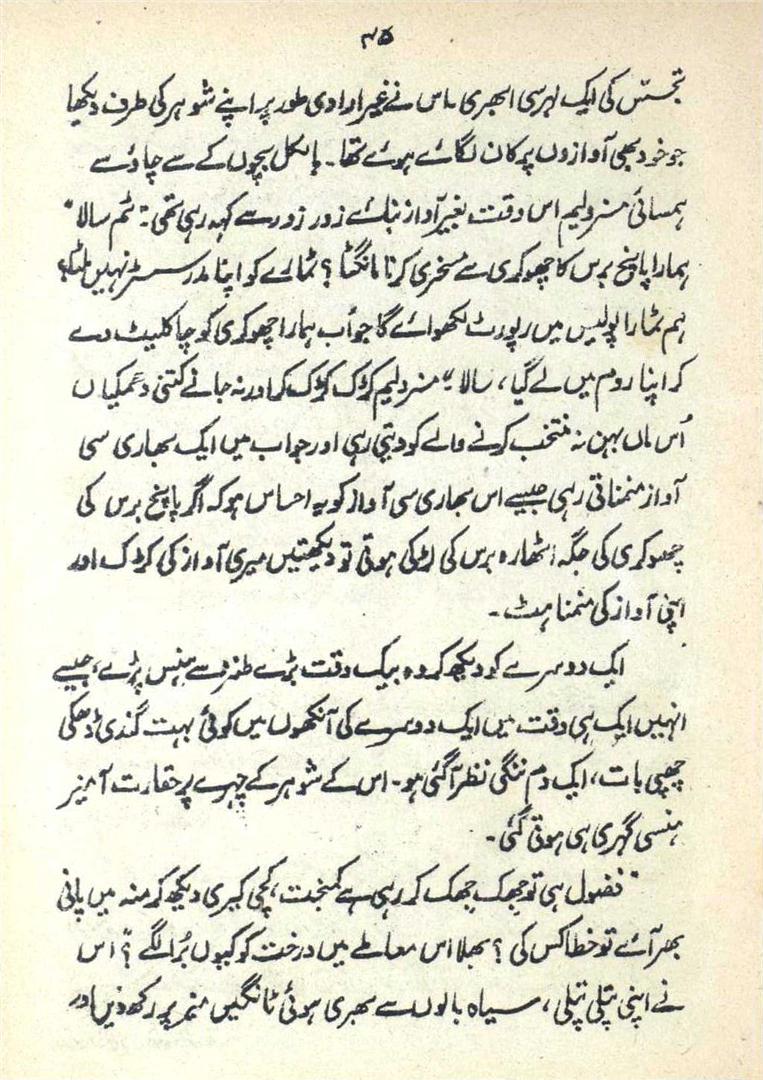 ۴۵
تجسّس کی ایک لہر سی ابھری۔ اس نے غیر ارادی طور پر اپنے شوہر کی طرف دیکھا
جو خود بھی آوازوں پر کان لگائے ہوئے تھا۔ بالکل بچوں کے سے چاؤ سے
ہمسائی مسز ولیم اس وقت بغیر آواز بنائے زور زور سے کہہ رہی تھی: "تم سالا"
ہمارا پانچ برس کا چھوکری سے مسخری کرنا مانگٹا؟ تمارے کو اپنا مدر سسٹر نہیں ملٹا؟
ہم تمارا پولیس میں رپورٹ لکھوائے گا جو اب ہمارا چھوکری کو چاکلیٹ دے
کر اپنا روم میں لے گیا، سالا۔" مسز ولیم کڑک کڑک کر اور نہ جانے کتنی دھمکیاں
اُس ماں بہن نہ منتخب کرنے والے کو دیتی رہی اور جواب میں ایک بھاری سی
آواز منمناتی رہی جیسے اس بھاری سی آواز کو یہ احساس ہو کہ اگر پانچ برس کی
چھوکری کی جگہ اٹھارہ برس کی لڑکی ہوتی تو دیکھتیں میری آواز کی کڑک اور
اپنی آواز کی منمناہٹ۔
ایک دوسرے کو دیکھ کر وہ بیک وقت بڑے طنز سے ہنس پڑے، جیسے
انہیں ایک ہی وقت میں ایک دوسرے کی آنکھوں میں کوئی بہت گندی ڈھکی
چھپی بات، ایک دم ننگی نظر آ گئی ہو۔ اس کے شوہر کے چہرے پر حقارت آمیز
ہنسی گہری ہی ہوتی گئی۔
"فضول ہی تو جھک جھک کر رہی ہے کمبخت، کچی کیری دیکھ کر منہ میں پانی
بھر آئے تو خطا کس کی؟ بھلا اس معاملے میں درخت کو کیوں بُرا لگے؟" اس
نے اپنی پتلی پتلی، سیاہ بالوں سے بھری ہوئی ٹانگیں میز پر رکھ دیں اور